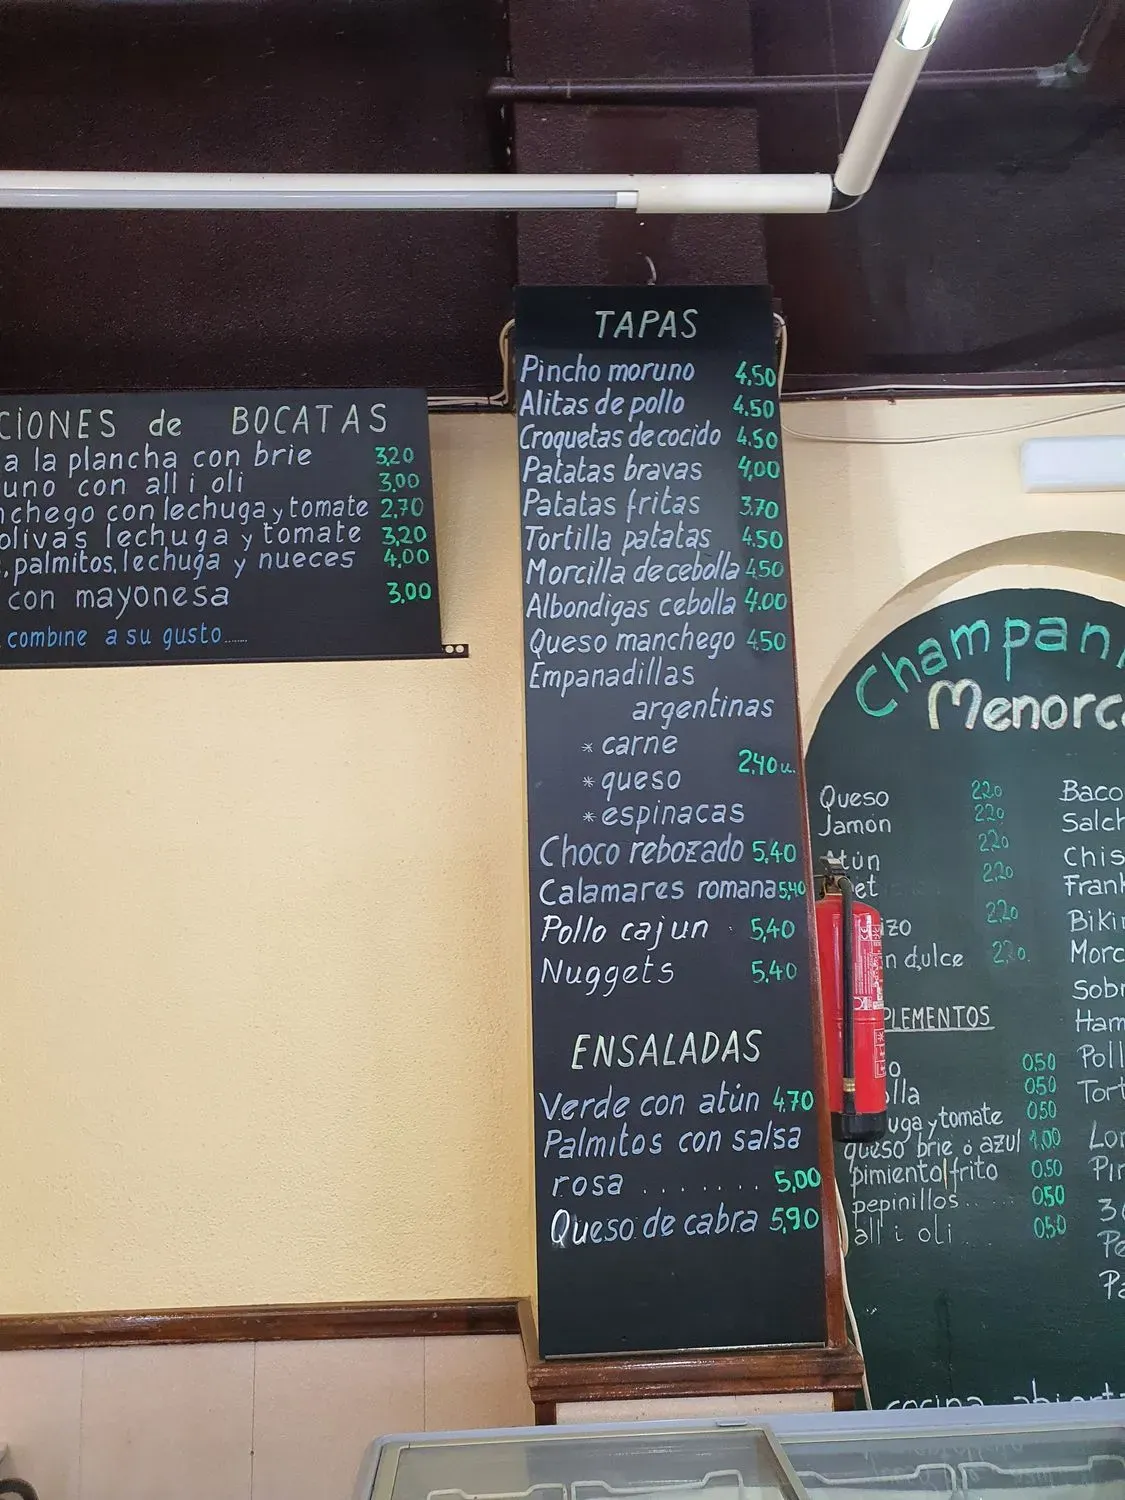 CIONES de BOCATAS
a la plancha con brie 3,20
uno con all i oli 3,00
nchego con lechuga y tomate 2,70
olivas lechuga y tomate 3,20
, palmitos, lechuga y nueces 4,00
con mayonesa 3,00
combine a su gusto........
TAPAS
Pincho moruno 4,50
Alitas de pollo 4.50
Croquetas de cocido 4.50
Patatas bravas 4,00
Patatas fritas 3.70
Tortilla patatas 4.50
Morcilla de cebolla 4.50
Albondigas cebolla 4.00
Queso manchego 4.50
Empanadillas
argentinas
* carne
2,40 u.
* queso
* espinacas
Choco rebozado 5.40
Calamares romana 5,40
Pollo cajun 5,40
Nuggets 5,40
ENSALADAS
Verde con atún 4.70
Palmitos con salsa
rosa ....... 5,00
Queso de cabra 5,90
Champan
Menorc
Queso 2,20
Jamón 2,20
Atún 2,20
et 2,20
izo 2,20
n dulce 2,20.
PLEMENTOS
o 0,50
olla 0,50
uga y tomate 0,50
queso brie ó azul 1,00
pimiento frito 0,50
pepinillos... 0,50
all i oli 0,50
Baco
Salch
Chis
Frank
Bikin
Morc
Sobr
Ham
Poll
Tort
Lor
Pin
Pe
Pa
cocina abierta